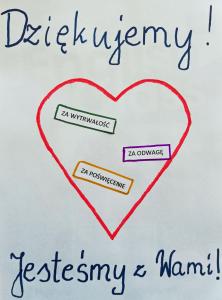 Dziękujemy!
ZA WYTRWAŁOŚĆ
ZA ODWAGĘ
ZA POŚWIĘCENIE
Jesteśmy z Wami!